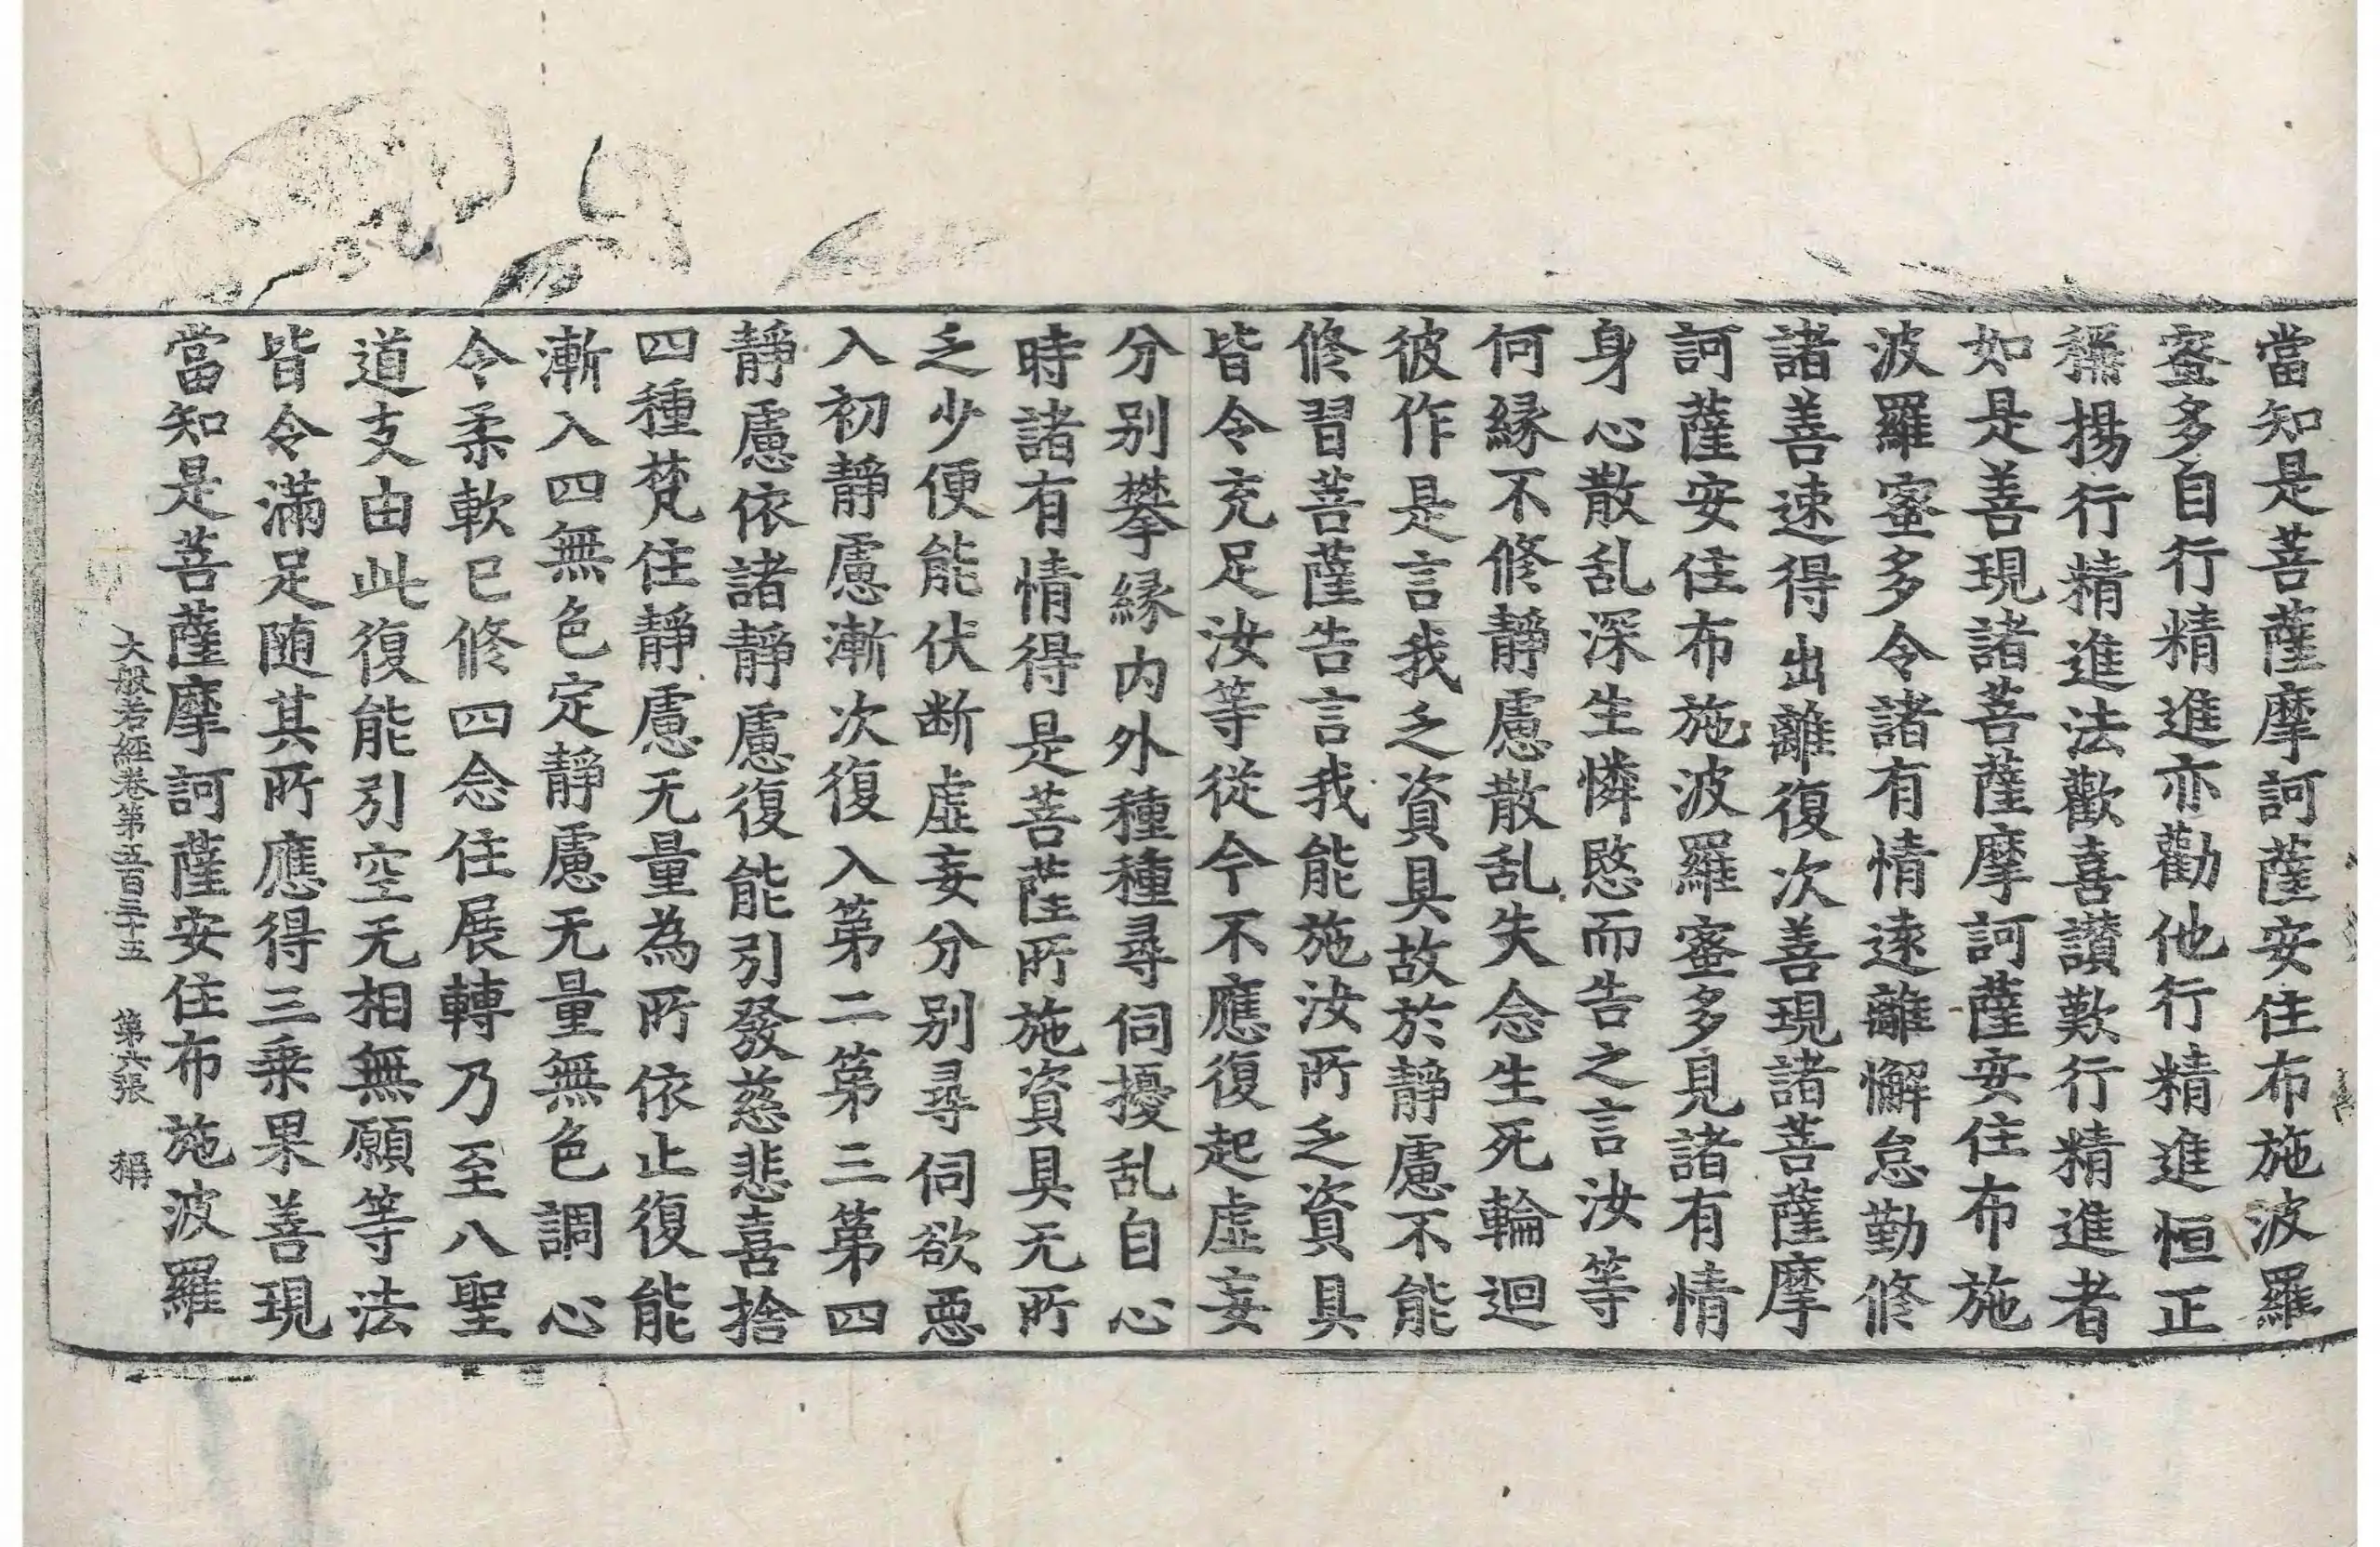 當知是菩薩摩訶薩安住布施波羅
蜜多自行精進亦勸他行精進恒正
稱揚行精進法歡喜讃歎行精進者
如是善現諸菩薩摩訶薩安住布施
波羅蜜多令諸有情遠離懈怠勤修
諸善速得出離復次善現諸菩薩摩
訶薩安住布施波羅蜜多見諸有情
身心散乱深生憐愍而告之言汝等
何縁不修靜慮散乱失念生死輪迴
彼作是言我乏資具故於靜慮不能
修習菩薩告言我能施汝所乏資具
皆令充足汝等從今不應復起虛妄
分別攀縁内外種種尋伺擾乱自心
時諸有情得是菩薩所施資具无所
乏少便能伏断虛妄分別尋伺欲惡
入初靜慮漸次復入第二第三第四
靜慮依諸靜慮復能引發慈悲喜捨
四種梵住靜慮无量為所依止復能
漸入四無色定靜慮无量無色調心
令柔軟已修四念住展轉乃至八聖
道支由此復能引空无相無願等法
皆令滿足随其所應得三乗果善現
當知是菩薩摩訶薩安住布施波羅
大般若經卷第五百三十五 第六張 稱